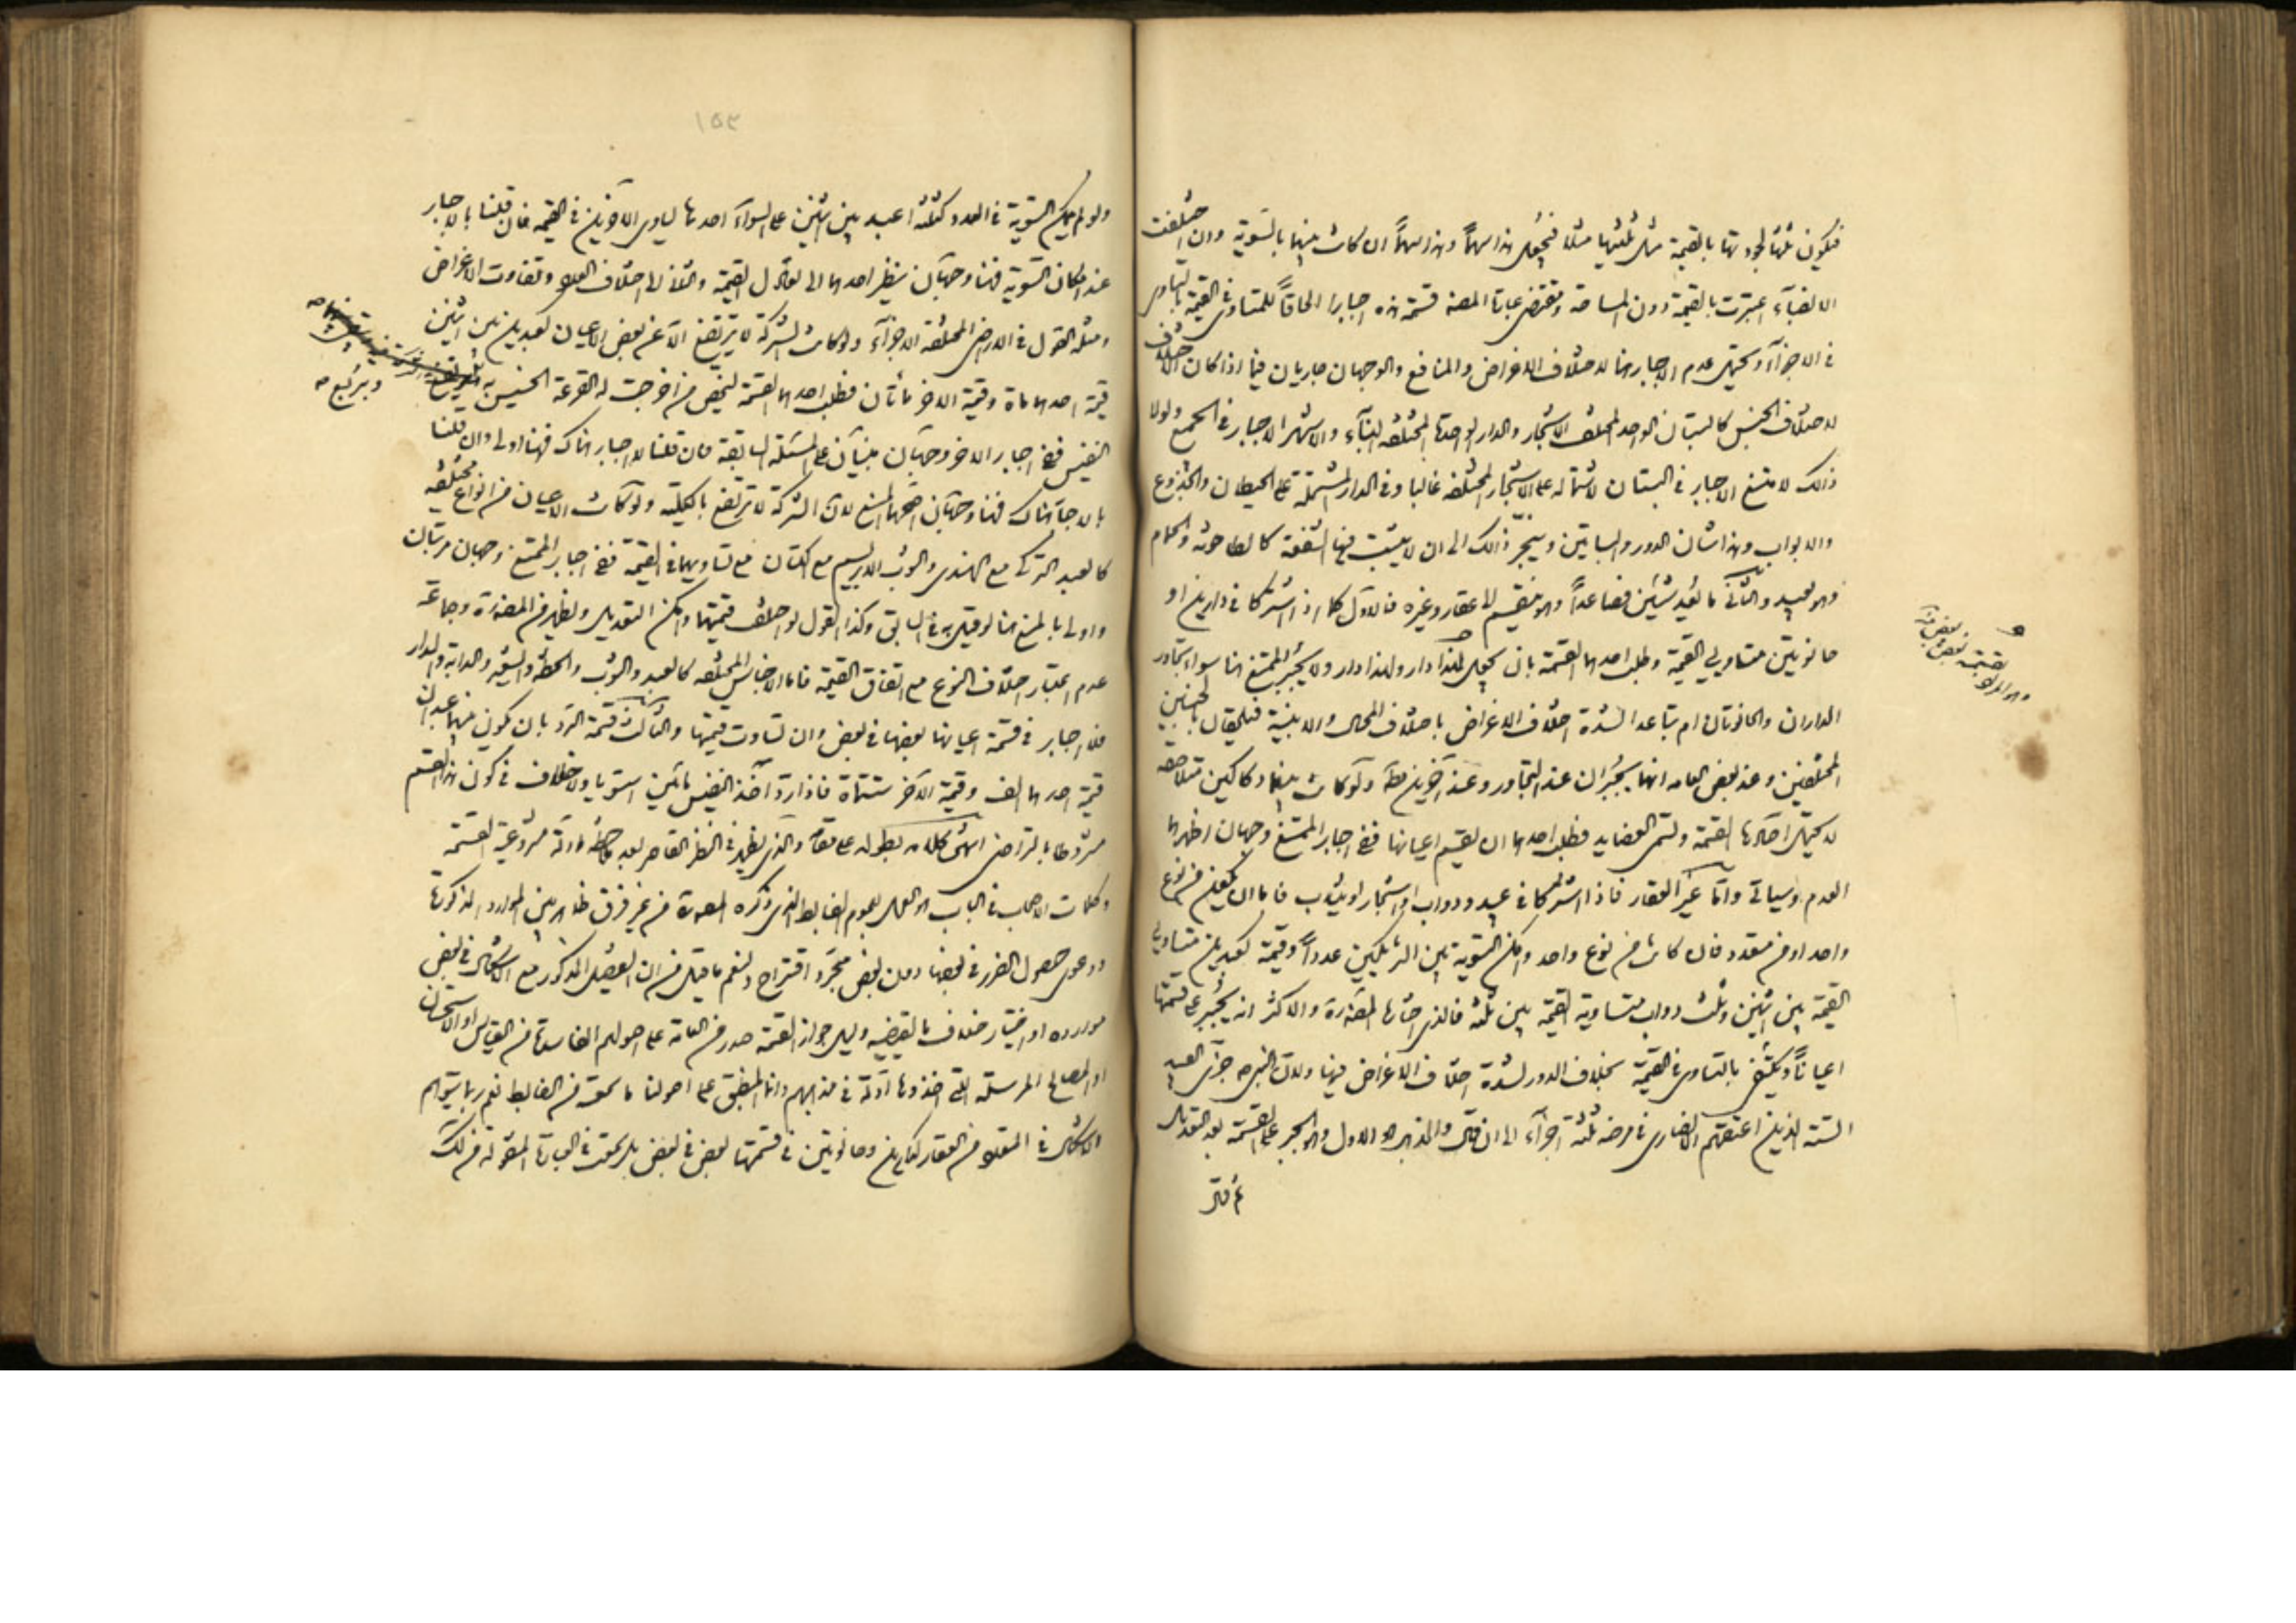 فيكون ثلثها لجودتها بالقيمة مثل ثلثيها مثلا فيجعل هذا سهماً وهذا سهماً ان كانت بينهما بالسوية وان اختلفت
الانصباء اعتبرت بالقيمة دون المساحة ومقتضى عبارة المصنف قسمة هذه اجبارا الحاقاً للتساوى فى القيمة بالتساوى
فى الاجزاء ويحتمل عدم الاجبار هنا لاختلاف الاغراض والمنافع والوجهان جاريان فيما اذا كان الاختلاف
لاختلاف الجنس كالبستان الواحد المختلف الاشجار والدار الواحدة المختلفة البناء والاشهر الاجبار فى الجميع ولولا
ذلك لامتنع الاجبار فى البستان لاشتماله على الاشجار المختلفة غالبا وفى الدار المشتملة على الحيطان والجذوع
والابواب وهذا شان الدور والبساتين وينجر ذلك الى ان لا يثبت فيها الشفعة كالطاحونة والحمام
وهو بعيد والثانى ما يعد شيئين فصاعداً وهو ينقسم الى عقار وغيره فالاول كما اذا اشتركا فى دارين او
حانوتين متساويى القيمة وطلب احدهما القسمة بان يجعل لهذا دار ولهذا دار ولا يجبر الممتنع هنا سواء تجاور
الداران والحانوتان ام تباعدا لشدة اختلاف الاغراض باختلاف المحال والابنية فيلحقان بالجنسين
المختلفين وعند بعض العامة انهما يجبران عند التجاور وعند آخرين مطلقا ولو كانت بينهما دكاكين متلاصقة
لا يحتمل آحادها القسمة وتسمى العضايد فطلب احدهما ان يقسم اعيانها ففى اجبار الممتنع وجهان اظهرهما
العدم وسياتى واما غير العقار فاذا اشتركا فى عبيد ودواب او اشجار او ثياب فاما ان يكون من نوع
واحد او من متعدد فان كانت من نوع واحد وامكن التسوية بين الشريكين عدداً وقيمة كعبدين متساويى
القيمة بين اثنين وثلث دواب متساوية القيمة بين ثلثة فالذى اختاره المصنف والاكثر انه يجبر على قسمتها
اعياناً ويكتفى بالتساوى فى القيمة بخلاف الدور لشدة اختلاف الاغراض فيها ولان النبى ص جزى العبيد
الستة الذين اعتقهم الانصارى فى مرضه ثلثة اجزاء الى ان قال والمذهب هو الاول وهو الجبر على القسمة بعد التعديل
ثم قال
١٥٣
ولو لم يمكن التسوية فى العدد كثلثة اعبد بين اثنين على السواء احدها يساوى الاخرين فى القيمة فان قلنا بالاجبار
عند امكان التسوية فهنا وجهان ينظر احدهما الى تعادل القيمة والثانى الى اختلاف العدد وتفاوت الاغراض
ومثله القول فى الارض المختلفة الاجزاء ولو كانت الشركة لا ترتفع الا عن بعض الاعيان كعبدين بين اثنين
قيمة احدهما مائة وقيمة الاخر مأتان فطلب احدهما القسمة ليختص من اخرجت له القرعة الخسيس به
وبربع
النفيس ففى اجبار الاخر وجهان مبنيان على المسئلة السابقة فان قلنا لا اجبار هناك فهنا اولى وان قلنا
بالاجبار هناك فهنا وجهان اصحهما المنع لان الشركة لا ترتفع بالكلية ولو كانت الاعيان من انواع مختلفة
كالعبد التركى مع الهندى والثوب الابريسم مع الكتان مع تساويهما فى القيمة ففى اجبار الممتنع وجهان مرتبان
واولى بالمنع هنا لو قيل به فى السابق وكذا القول لو اختلف قيمتها وامكن التعديل ويظهر من المصنف وجماعة
عدم اعتبار اختلاف النوع مع اتفاق القيمة فاما الاجناس المختلفة كالعبد والثوب والحنطة والشعير والدابة والدار
فلا اجبار فى قسمة اعيانها بعضها فى بعض وان تساوت قيمتها والثالث قسمة الرد بان يكون بينهما عبدان
قيمة احدهما الف وقيمة الاخر ستمائة فاذا رد آخذ النفيس مأتين استويا ولا خلاف فى كون هذا القسم
مشروطا بالتراضى انتهى كلامه بطوله على مقامه والذى يظهر فى النظر القاصر بعد ملاحظة ادلة مشروعية القسمة
وكلمات الاصحاب فى الباب هو العمل بعموم الضابط الذى ذكره المصنف من غير فرق ظاهر بين الموارد المذكورة
ودعوى حصول الضرر فى بعضها دون بعض مجرد اقتراح ولنعم ما قيل من ان التفصيل المذكور مع الاشكال فى بعض
موارده او اختيار خلاف ما يقتضيه دليل جواز القسمة صدر من العامة على اصولهم الفاسدة من القياس او الاستحسان
او المصالح المرسلة التى اخذوها ادلة فى مذاهبهم واما المنطبق على اصولنا ما سمعته من الضابط نعم ربما يتوهم
الاشكال فى المتعدد من العقار كدارين وحانوتين فى قسمتها بعض فى بعض بل سمعت فى العبارة المنقولة من لك